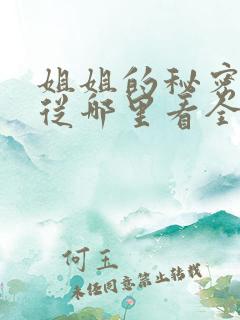 姐姐的秘密
从哪里看全
何玉
未经同意禁止转载